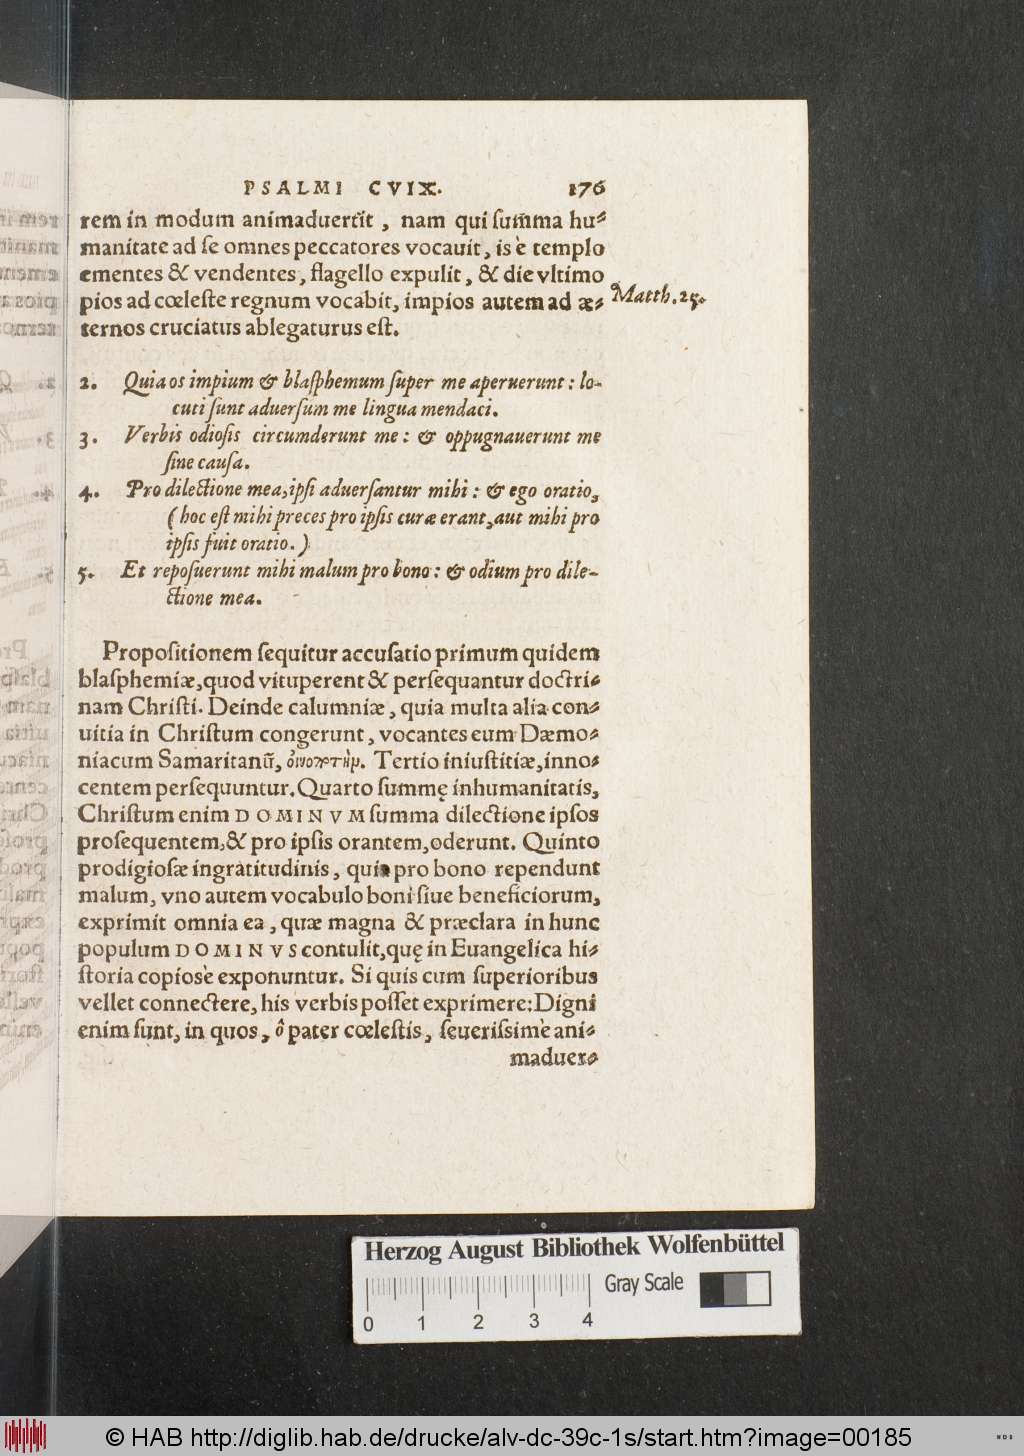 PSALMI CVIX. 176
rem in modum animaduertit, nam qui sum̃a hu-
manitate ad se omnes peccatores vocauit, is è templo
ementes & vendentes, flagello expulit, & die vltimo
pios ad cœleste regnum vocabit, impios autem ad æ-
Matth. 25.
ternos cruciatus ablegaturus est.
2. Quia os impium & blasphemum super me aperuerunt: lo-
cuti sunt aduersum me lingua mendaci.
3. Verbis odiosis circumderunt me: & oppugnauerunt me
sine causa.
4. Pro dilectione mea, ipsi aduersantur mihi: & ego oratio,
(hoc est mihi preces pro ipsis curæ erant, aut mihi pro
ipsis fuit oratio.)
5. Et reposuerunt mihi malum pro bono: & odium pro dile-
ctione mea.
Propositionem sequitur accusatio primum quidem
blasphemiæ, quod vituperent & persequantur doctri-
nam Christi. Deinde calumniæ, quia multa alia con-
uitia in Christum congerunt, vocantes eum Dæmo-
niacum Samaritanũ, οἰνοπότην. Tertio iniustitiæ, inno-
centem persequuntur. Quarto summę inhumanitatis,
Christum enim DOMINVM summa dilectione ipsos
prosequentem, & pro ipsis orantem, oderunt. Quinto
prodigiosæ ingratitudinis, quia pro bono rependunt
malum, vno autem vocabulo boni siue beneficiorum,
exprimit omnia ea, quæ magna & præclara in hunc
populum DOMINVS contulit, quę in Euangelica hi-
storia copiosè exponuntur. Si quis cum superioribus
vellet connectere, his verbis posset exprimere: Digni
enim sunt, in quos, ô pater cœlestis, seuerissimè ani-
maduer-
Herzog August Bibliothek Wolfenbüttel
Gray Scale
0 1 2 3 4
© HAB http://diglib.hab.de/drucke/alv-dc-39c-1s/start.htm?image=00185